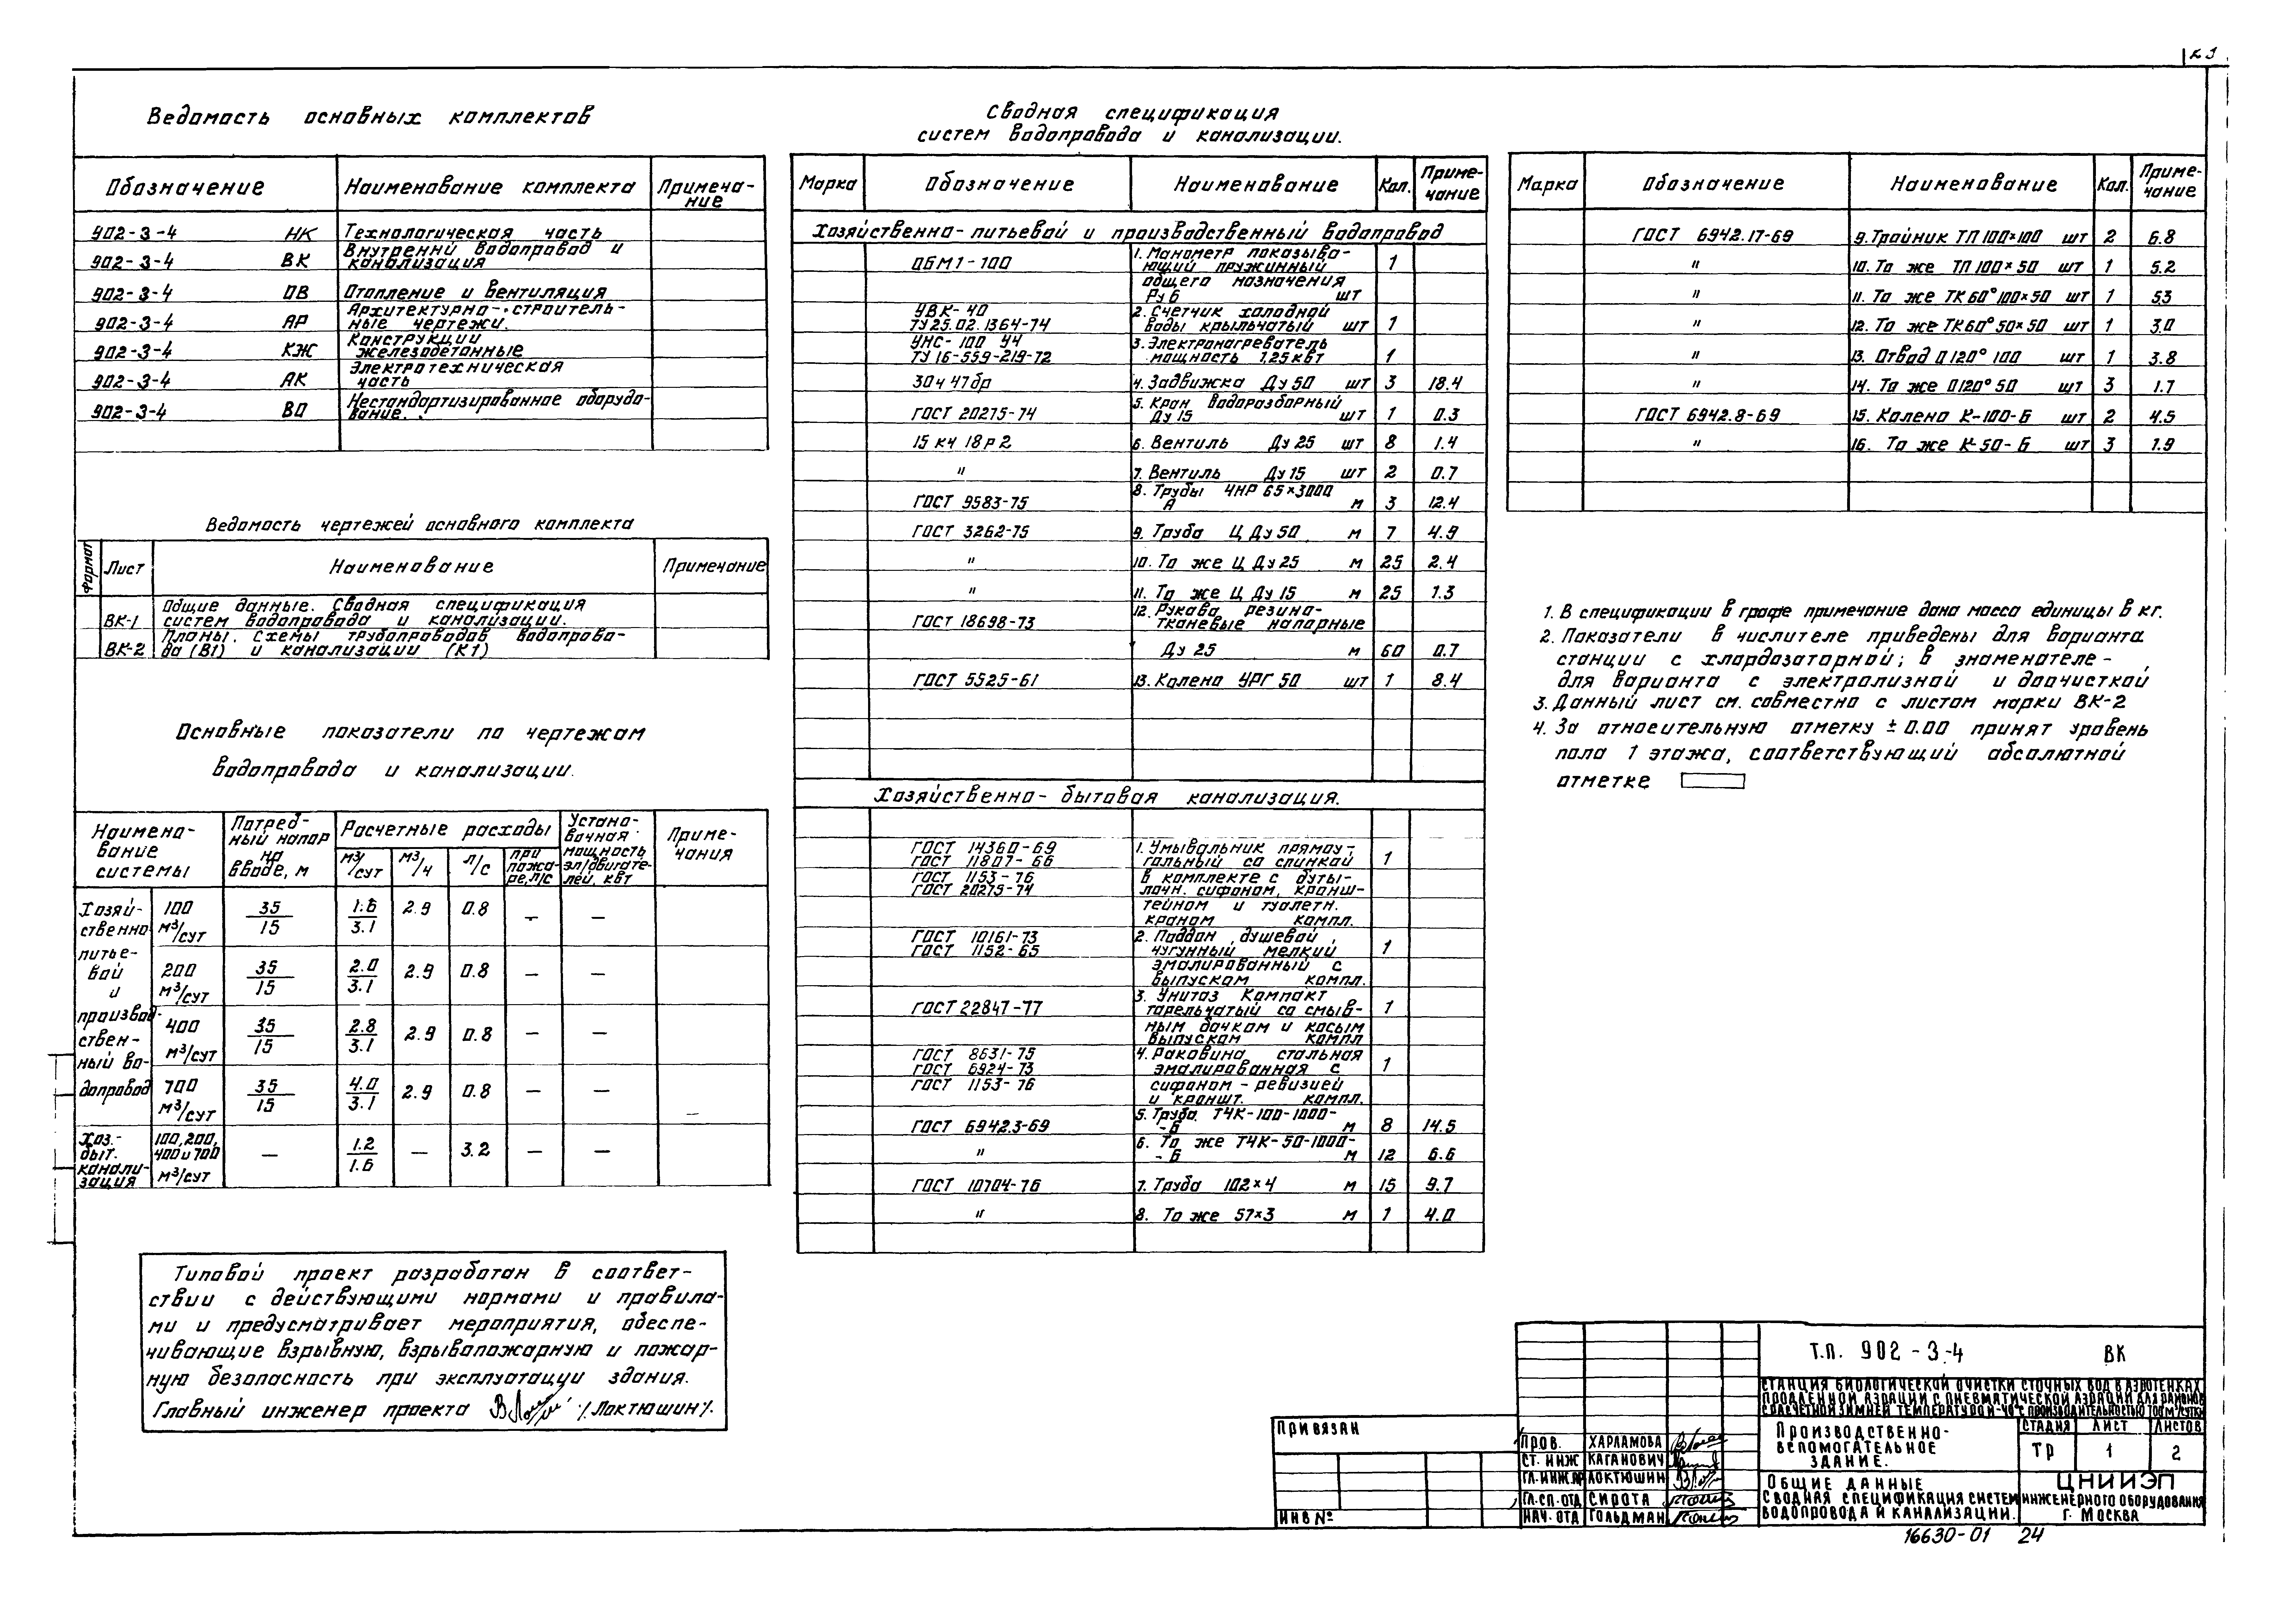 23
Ведомость основных комплектов
Обозначение Наименование комплекта Примеча-
ние
902-3-4 НК Технологическая часть
902-3-4 ВК Внутренний водопровод и
канализация
902-3-4 ОВ Отопление и вентиляция
902-3-4 АР Архитектурно-строитель-
ные чертежи.
902-3-4 КЖ Конструкции
железобетонные
902-3-4 АК Электротехническая
часть
902-3-4 ВО Нестандартизированное оборудо-
вание.
Ведомость чертежей основного комплекта
Формат Лист Наименование Примечание
ВК-1 Общие данные. Сводная спецификация
систем водопровода и канализации.
ВК-2 Планы. Схемы трубопроводов водопрово-
да (В1) и канализации (К1)
Основные показатели по чертежам
водопровода и канализации.
Наимено-
вание
системы
Потреб-
ный напор
на
вводе, м
Расчетные расходы
м³/сут м³/ч л/с при
пожа-
ре, л/с
Устано-
вочная
мощность
эл/двигате-
лей, квт
Приме-
чания
Хозяй-
ственно
питье-
вой
и
производ-
ствен-
ный во-
допровод
100 м³/сут 35/15 1.6/3.1 2.9 0.8 — —
200 м³/сут 35/15 2.0/3.1 2.9 0.8 — —
400 м³/сут 35/15 2.8/3.1 2.9 0.8 — —
700 м³/сут 35/15 4.0/3.1 2.9 0.8 — —
Хоз.-
быт.
канали-
зация
100, 200,
400 и 700
м³/сут — 1.2/1.6 — 3.2 — —
Типовой проект разработан в соответ-
ствии с действующими нормами и правила-
ми и предусматривает мероприятия, обеспе-
чивающие взрывную, взрывопожарную и пожар-
ную безопасность при эксплуатации здания.
Главный инженер проекта /Локтюшин/.
Сводная спецификация
систем водопровода и канализации.
Марка Обозначение Наименование Кол. Приме-
чание
Хозяйственно-питьевой и производственный водопровод
ОБМ1-100 1. Манометр показыва-
ющий пружинный 1
общего назначения
Ру 6 шт
УВК-40
ТУ25.02.1364-74 2. Счетчик холодной
воды крыльчатый шт 1
УНС-100 У4
ТУ16-559-219-72 3. Электронагреватель
мощность 1.25 квт 1
30ч 47бр 4. Задвижка Ду 50 шт 3 18.4
ГОСТ 20275-74 5. Кран водоразборный
Ду 15 шт 1 0.3
15 кч 18р2 6. Вентиль Ду 25 шт 8 1.4
" 7. Вентиль Ду 15 шт 2 0.7
ГОСТ 9583-75 8. Трубы ЧНР 65×3000
А м 3 12.4
ГОСТ 3262-75 9. Труба Ц Ду 50 м 7 4.9
" 10. То же Ц Ду 25 м 25 2.4
" 11. То же Ц Ду 15 м 25 1.3
ГОСТ 18698-73 12. Рукава резино-
тканевые напорные
Ду 25 м 60 0.7
ГОСТ 5525-61 13. Колено УРГ 50 шт 1 8.4
Хозяйственно-бытовая канализация.
ГОСТ 14360-69
ГОСТ 11807-66 1. Умывальник прямоу-
гольный со спинкой 1
ГОСТ 1153-76
ГОСТ 20275-74 в комплекте с буты-
лочн. сифоном, кронш-
тейном и туалетн.
краном компл.
ГОСТ 10161-73
ГОСТ 1152-65 2. Поддон душевой
чугунный мелкий 1
эмалированный с
выпуском компл.
ГОСТ 22847-77 3. Унитаз Компакт
тарельчатый со смыв- 1
ным бачком и косым
выпуском компл
ГОСТ 8631-75
ГОСТ 6924-73
ГОСТ 1153-76 4. Раковина стальная
эмалированная с 1
сифоном-ревизией
и кроншт. компл.
ГОСТ 6942.3-69 5. Труба ТЧК-100-1000-
-Б м 8 14.5
" 6. То же ТЧК-50-1000-
-Б м 12 6.6
ГОСТ 10704-76 7. Труба 102×4 м 15 9.7
" 8. То же 57×3 м 1 4.0
Марка Обозначение Наименование Кол. Приме-
чание
ГОСТ 6942.17-69 9. Тройник ТП 100×100 шт 2 6.8
" 10. То же ТП 100×50 шт 1 5.2
" 11. То же ТК 60° 100×50 шт 1 5.3
" 12. То же ТК 60° 50×50 шт 1 3.0
" 13. Отвод О 120° 100 шт 1 3.8
" 14. То же О 120° 50 шт 3 1.7
ГОСТ 6942.8-69 15. Колено К-100-Б шт 2 4.5
" 16. То же К-50-Б шт 3 1.9
1. В спецификации в графе примечание дана масса единицы в кг.
2. Показатели в числителе приведены для варианта
станции с хлордозаторной; в знаменателе -
для варианта с электролизной и доочисткой
3. Данный лист см. совместно с листом марки ВК-2
4. За относительную отметку ± 0.00 принят уровень
пола 1 этажа, соответствующий абсолютной
отметке
Привязан
Инв №
Пров. Харламова
Ст. инж Каганович
Гл. инж. пр Локтюшин
Гл. сп. отд Сирота
Нач. отд Гольдман
Т.П. 902-3-4 ВК
Станция биологической очистки сточных вод в аэротенках
продленной аэрации с пневматической аэрацией для районов
с расчетной зимней температурой -40°С производительностью 700 м³/сутки
Производственно-
вспомогательное
здание.
Стадия Лист Листов
ТР 1 2
Общие данные
Сводная спецификация систем
водопровода и канализации.
ЦНИИЭП
инженерного оборудования
г. Москва
16630-01 24